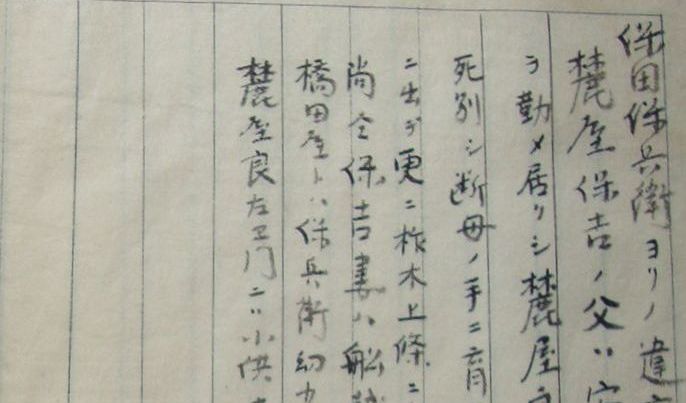 保田保兵衛ヨリノ違
麓屋保吉ノ父ハ
ヲ勤メ居リシ麓屋
死別シ断母ノ手ニ育
ニ出デ更ニ柞木上條ニ
尚仝保吉妻ハ船
橋田屋トハ保兵衛幼
麓屋良左エ門ニハ小供